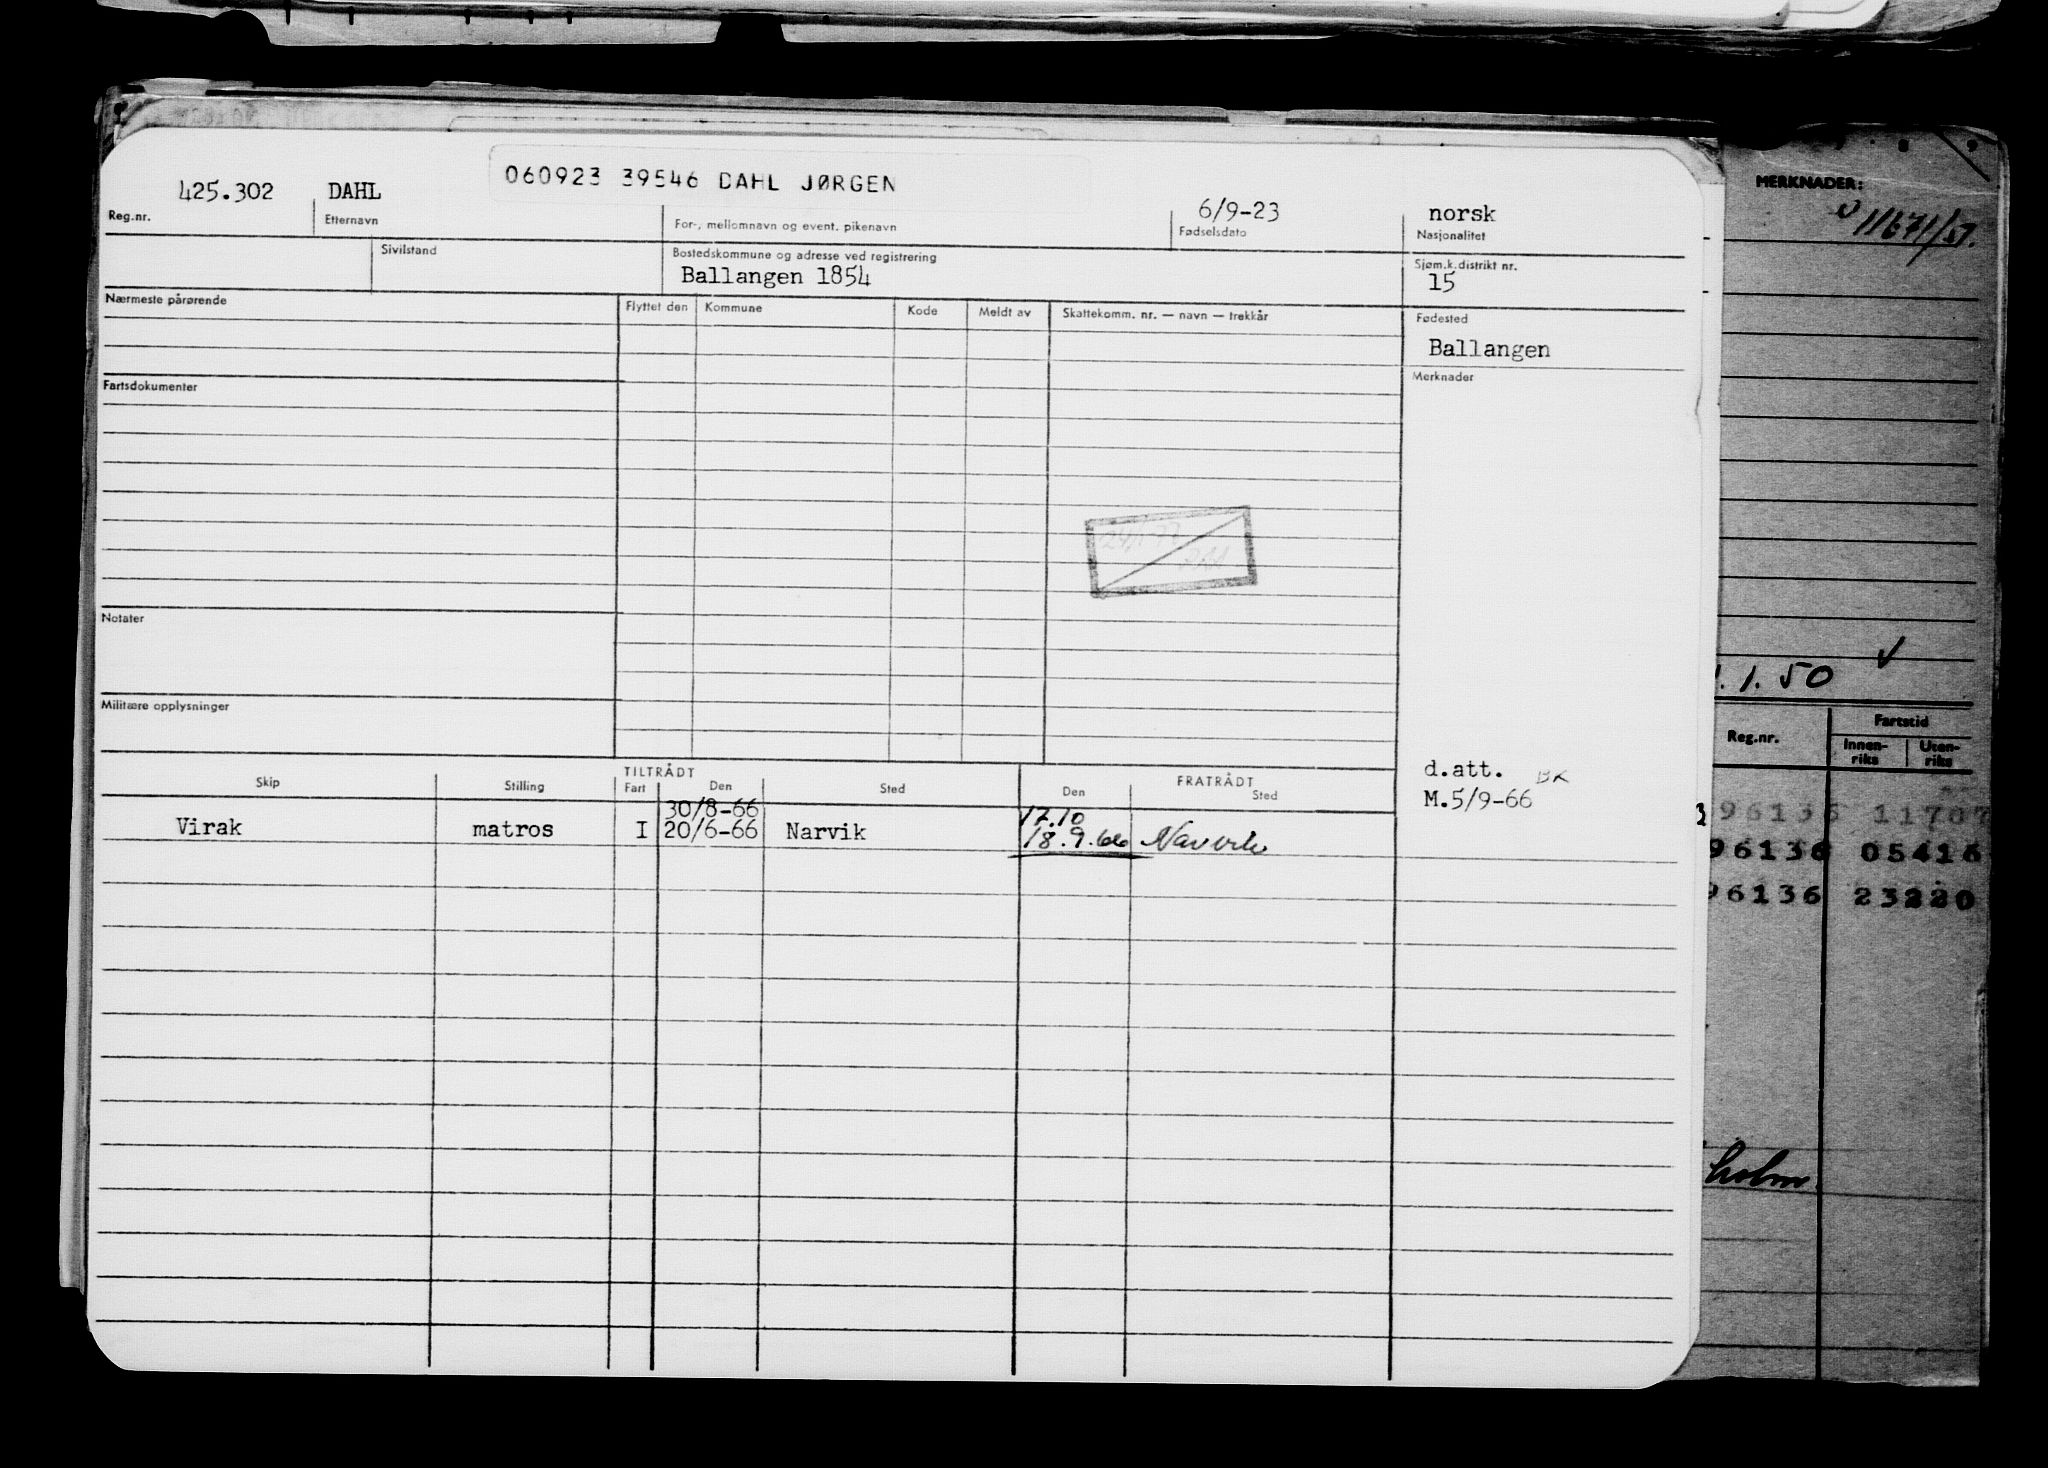 060923 39546 DAHL JØRGEN
425.302 DAHL 6/9-23 norsk
Reg.nr. Etternavn For-, mellomnavn og event. pikenavn Fødselsdato Nasjonalitet
Sivilstand Bostedskommune og adresse ved registrering Sjøm.k.distrikt nr.
Ballangen 1854 15
Nærmeste pårørende Flyttet den Kommune Kode Meldt av Skattekomm. nr. — navn — trekkår Fødested
Ballangen
Fartsdokumenter Merknader
Notater
Militære opplysninger
d.att. BK
M.5/9-66
TILTRÅDT FRATRÅDT
Skip Stilling Fart Den Sted Den Sted
30/8-66 17.10
Virak matros I 20/6-66 Narvik 18.9.66 Narvik
MERKNADER:
11671/51.
1.1.50
Reg.nr. Fartstid
Innen-riks Uten-riks
96135 11707
96136 05416
96136 23220
holm